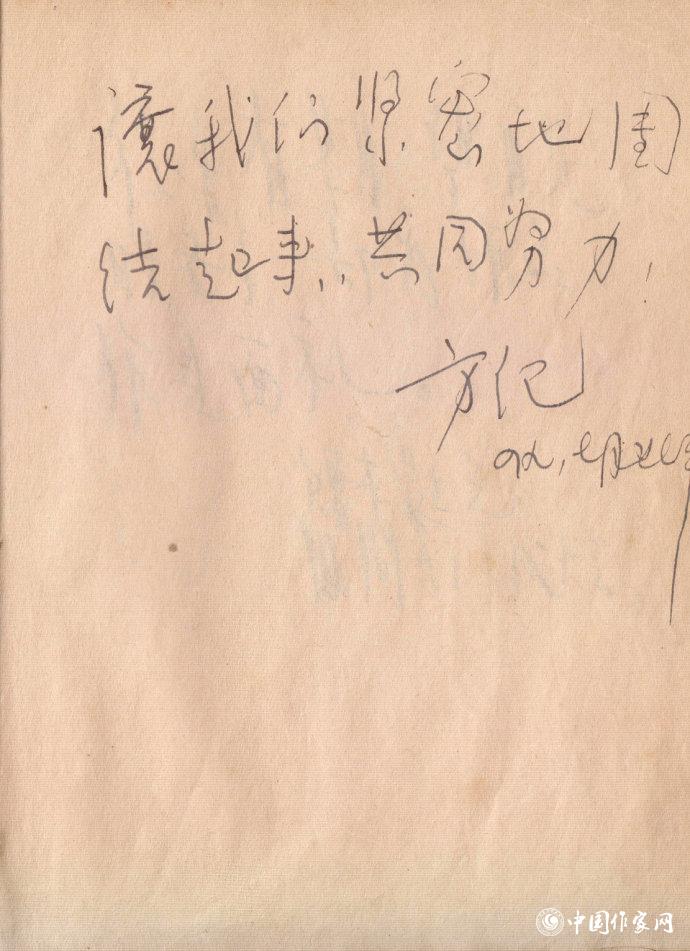 讓我们紧密地团
结起来,共同努力,
方纪
七月
中国作家网